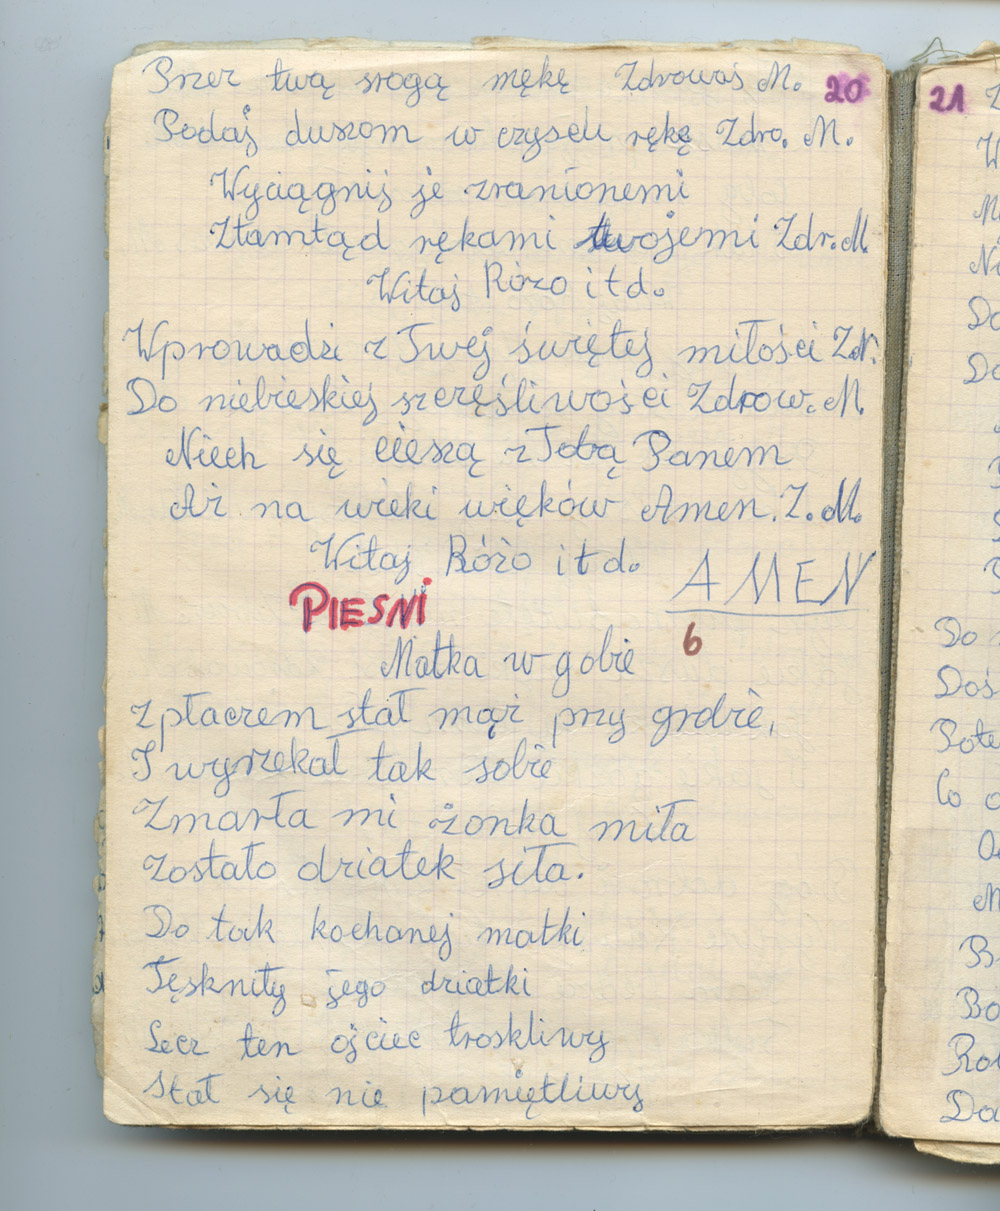 Przez twą srogą mękę Zdrowaś M. 20
Podaj duszom w czyscu rękę Zdro. M.
Wyciągnij je zranionemi
Ztamtąd rękami twojemi Zdr. M.
Witaj Rózo i t d.
Wprowadzi z Twej świętej miłości Zdr.
Do niebieskiej szczęśliwości Zdrow. M.
Niech się cieszą z Tobą Panem
Aż na wieki więków Amen. Z. M.
Witaj Różo i t d.
AMEN
PIESNI
6
Matka w gobie
Z płaczem stał mąż przy grobie,
I wyrzekal tak sobie
Zmarła mi żonka miła
zostało dziatek siła.
Do tak kochanej matki
Tęskniły jego dziatki
Lecz ten ojciec troskliwy
Stał się nie pamiętliwy
21
Do
Do
Do
Doś
Pote
Co
Bo
Do